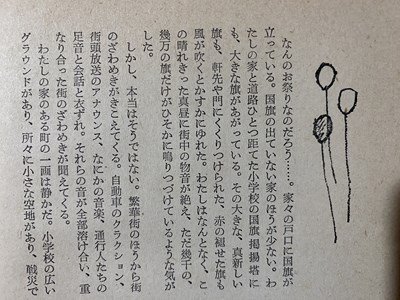 なんのお祭りなのだろう……。家々の戸口に国旗が
立っている。国旗の出ていない家のほうが少ない。わ
たしの家と道路ひとつ距てた小学校の国旗掲揚塔に
も、大きな旗があがっている。その大きな、真新しい
旗も、軒先や門にくくりつけられた、赤の褪せた旗も
風が吹くとかすかにゆれた。わたしはなんとなく、こ
の晴れきった真昼に街中の物音が絶え、ただ幾千の、
幾万の旗だけがひそかに鳴りつづけているような気が
した。
しかし、本当はそうではない。繁華街のほうから街
のざわめきがきこえてくる。自動車のクラクション、
街頭放送のアナウンス、なにかの音楽、通行人たちの
足音と会話と衣ずれ。それらの音が全部溶け合い、重
なり合った街のざわめきが聞えてくる。
わたしの家のある町の一画は静かだ。小学校の広い
グラウンドがあり、所々に小さな空地があり、戦災で